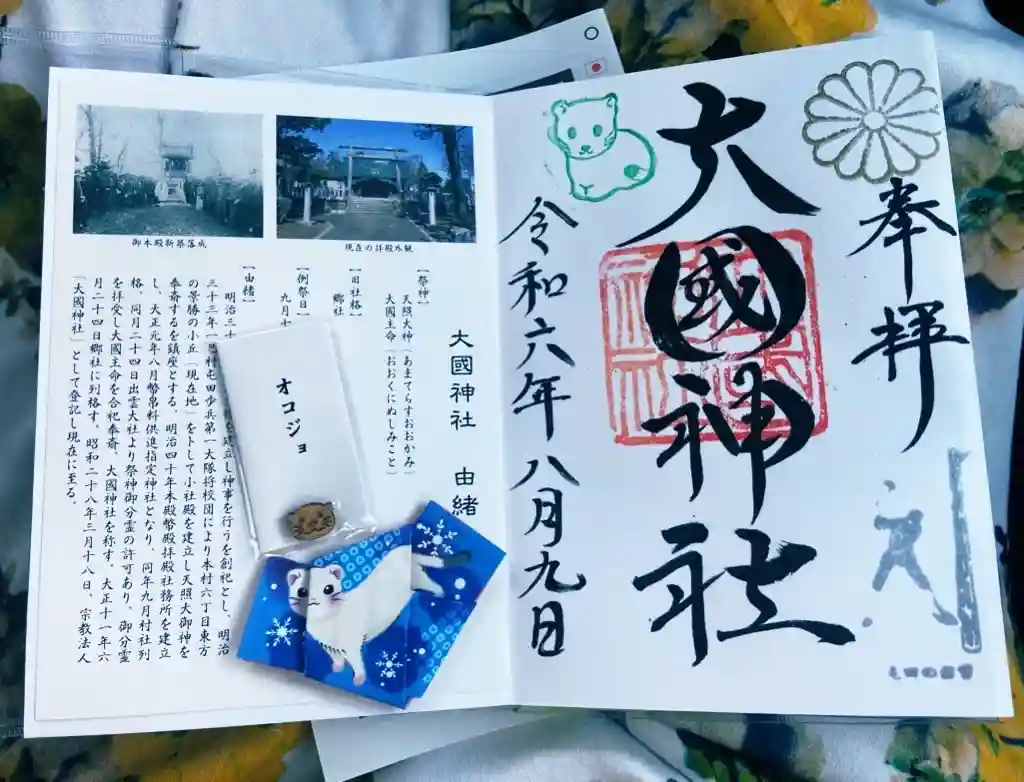 奉拝
大國神社
令和六年八月九日
御本殿新築落成
現在の拝殿外観
大國神社 由緒
【祭神】
天照大神(あまてらすおおかみ)
大國主命(おおくにぬしみこと)
【旧社格】
郷社
【例祭日】
九月十
【由緒】
明治三十 を建立し神事を行うを創祀とし、明治
三十三年 歩兵第一大隊将校団により本村六丁目東方
の景勝の小丘「現在地」をトして小社殿を建立し天照大御神を
奉斎するを鎮座とする。明治四十年本殿幣殿拝殿社務所を建立
し、大正元年八月幣帛料供進指定神社となり、同年九月村社列
格、同月二十四日出雲大社より祭神御分霊の許可あり、御分霊
を拝受し大國主命を合祀奉斎、大國神社を称す。大正十一年六
月二十四日郷社に列格す。昭和二十八年三月十八日、宗教法人
「大國神社」として登記し現在に至る。
オコジョ